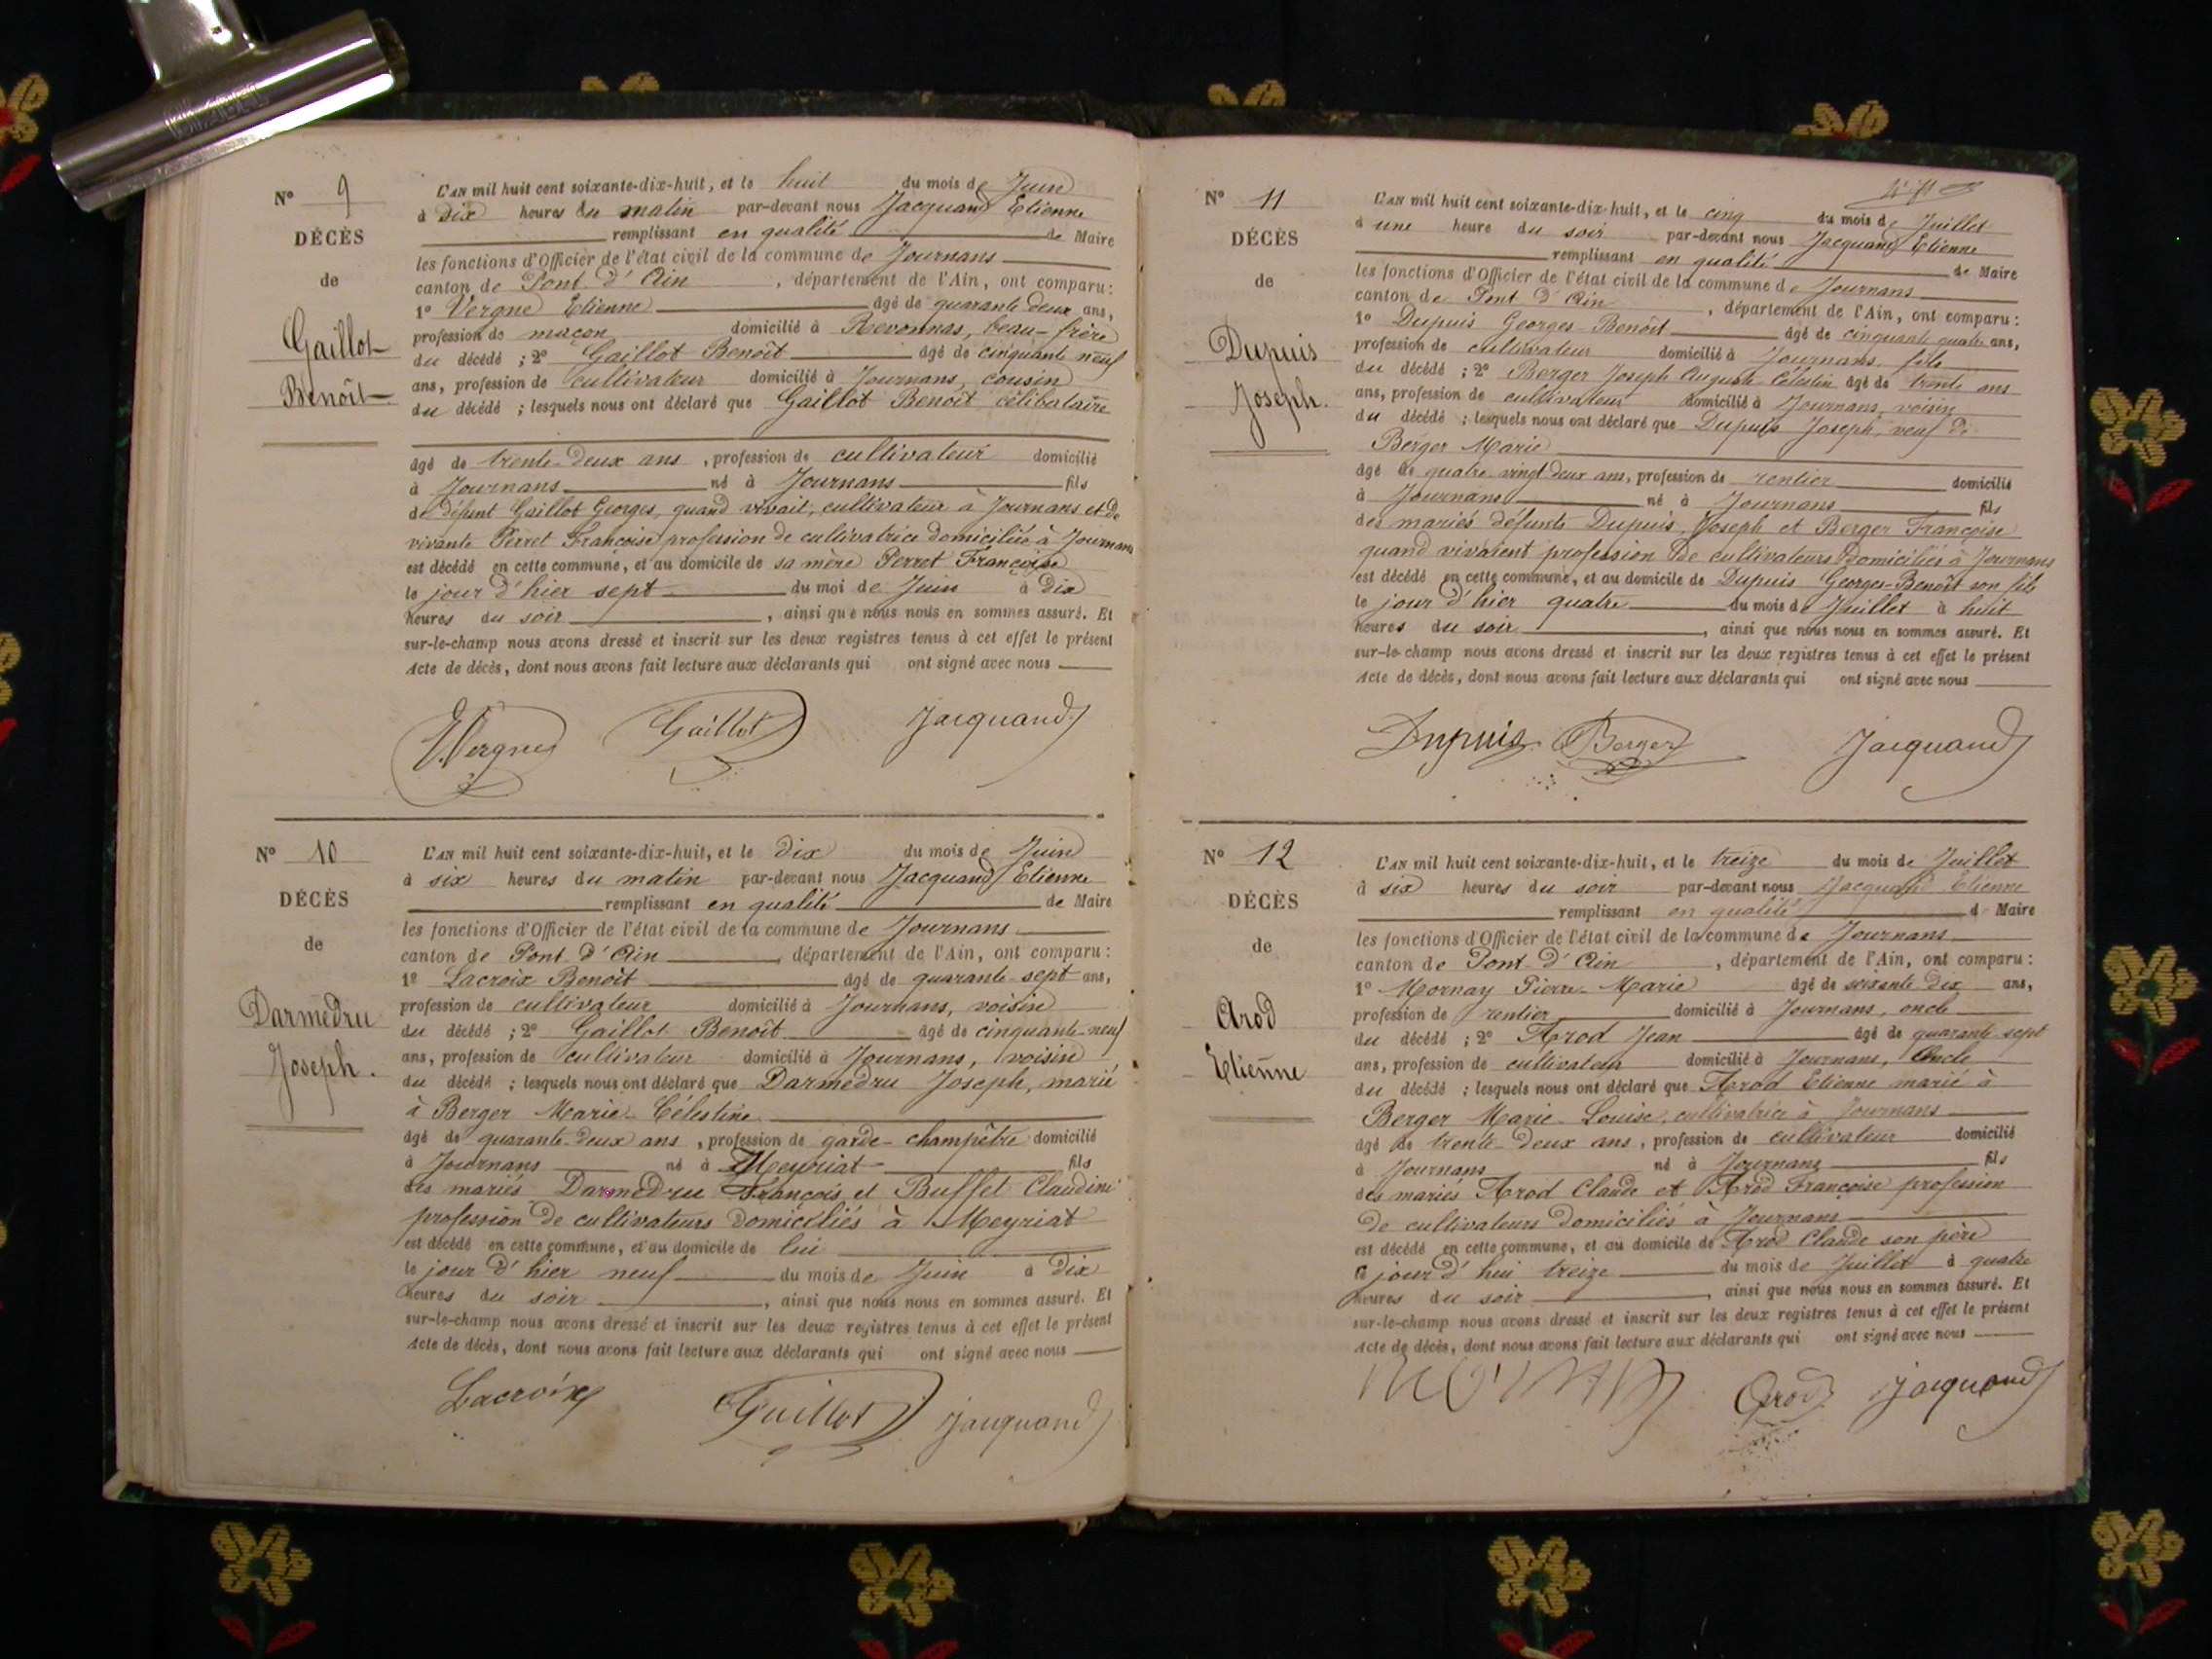 N° 9
DÉCÈS
de
Gaillot
Benoît
L'AN mil huit cent soixante-dix-huit, et le huit du mois de Juin
à dix heures du matin par-devant nous Jacquand Etienne
remplissant en qualité de Maire
les fonctions d'Officier de l'état civil de la commune de Journans
canton de Pont d'Ain, département de l'Ain, ont comparu:
1° Vergne Etienne âgé de quarante deux ans,
profession de maçon domicilié à Revonnas, beau-frère
du décédé ; 2° Gaillot Benoît âgé de cinquante neuf
ans, profession de cultivateur domicilié à Journans, cousin
du décédé ; lesquels nous ont déclaré que Gaillot Benoît célibataire
âgé de trente-deux ans, profession de cultivateur domicilié
à Journans né à Journans fils
de défunt Gaillot Georges, quand vivait, cultivateur à Journans et de
vivante Perret Françoise profession de cultivatrice domiciliée à Journans
est décédé en cette commune, et au domicile de sa mère Perret Françoise
le jour d'hier sept du moi de Juin à dix
heures du soir, ainsi que nous nous en sommes assuré. Et
sur-le-champ nous avons dressé et inscrit sur les deux registres tenus à cet effet le présent
Acte de décès, dont nous avons fait lecture aux déclarants qui ont signé avec nous
Vergne Gaillot Jacquand
N° 10
DÉCÈS
de
Darmedru
Joseph.
L'AN mil huit cent soixante-dix-huit, et le dix du mois de Juin
à six heures du matin par-devant nous Jacquand Etienne
remplissant en qualité de Maire
les fonctions d'Officier de l'état civil de la commune de Journans
canton de Pont d'Ain, département de l'Ain, ont comparu:
1° Lacroix Benoît âgé de quarante-sept ans,
profession de cultivateur domicilié à Journans, voisin
du décédé ; 2° Gaillot Benoît âgé de cinquante-neuf
ans, profession de cultivateur domicilié à Journans, voisin
du décédé ; lesquels nous ont déclaré que Darmedru Joseph, marié
à Berger Marie-Célestine
âgé de quarante-deux ans, profession de garde-champêtre domicilié
à Journans né à Meyriat fils
des mariés Darmedru François et Buffet Claudine
profession de cultivateurs domiciliés à Meyriat
est décédé en cette commune, et au domicile de lui
le jour d'hier neuf du mois de Juin à dix
heures du soir, ainsi que nous nous en sommes assuré. Et
sur-le-champ nous avons dressé et inscrit sur les deux registres tenus à cet effet le présent
Acte de décès, dont nous avons fait lecture aux déclarants qui ont signé avec nous
Lacroix Gaillot Jacquand
N° 11
DÉCÈS
de
Dupuis
Joseph.
L'AN mil huit cent soixante-dix-huit, et le cinq du mois de Juillet
à une heure du soir par-devant nous Jacquand Etienne
remplissant en qualité de Maire
les fonctions d'Officier de l'état civil de la commune de Journans
canton de Pont d'Ain, département de l'Ain, ont comparu:
1° Dupuis Georges-Benoît âgé de cinquante quatre ans,
profession de cultivateur domicilié à Journans, fils
du décédé ; 2° Berger Joseph Auguste Célestin âgé de trente ans
ans, profession de cultivateur domicilié à Journans, voisin
du décédé ; lesquels nous ont déclaré que Dupuis Joseph, veuf de
Berger Marie
âgé de quatre-vingt deux ans, profession de rentier domicilié
à Journans né à Journans fils
des mariés défunts Dupuis Joseph et Berger Françoise
quand vivaient profession de cultivateurs domiciliés à Journans
est décédé en cette commune, et au domicile de Dupuis Georges-Benoît son fils
le jour d'hier quatre du mois de Juillet à huit
heures du soir, ainsi que nous nous en sommes assuré. Et
sur-le-champ nous avons dressé et inscrit sur les deux registres tenus à cet effet le présent
Acte de décès, dont nous avons fait lecture aux déclarants qui ont signé avec nous
Dupuis Berger Jacquand
N° 12
DÉCÈS
de
Arod
Etienne
L'AN mil huit cent soixante-dix-huit, et le treize du mois de Juillet
à six heures du soir par-devant nous Jacquand Etienne
remplissant en qualité d Maire
les fonctions d'Officier de l'état civil de la commune de Journans
canton de Pont d'Ain, département de l'Ain, ont comparu:
1° Mornay Pierre-Marie âgé de soixante-dix ans,
profession de rentier domicilié à Journans, oncle
du décédé ; 2° Arod Jean âgé de quarante-sept
ans, profession de cultivateur domicilié à Journans, Oncle
du décédé ; lesquels nous ont déclaré que Arod Etienne marié à
Berger Marie-Louise, cultivatrice à Journans
âgé de trente-deux ans, profession de cultivateur domicilié
à Journans né à Journans fils
des mariés Arod Claude et Arod Françoise profession
de cultivateurs domiciliés à Journans
est décédé en cette commune, et au domicile de Arod Claude son père
le jour d'hui treize du mois de Juillet à quatre
heures du soir, ainsi que nous nous en sommes assuré. Et
sur-le-champ nous avons dressé et inscrit sur les deux registres tenus à cet effet le présent
Acte de décès, dont nous avons fait lecture aux déclarants qui ont signé avec nous
Arod Jacquand